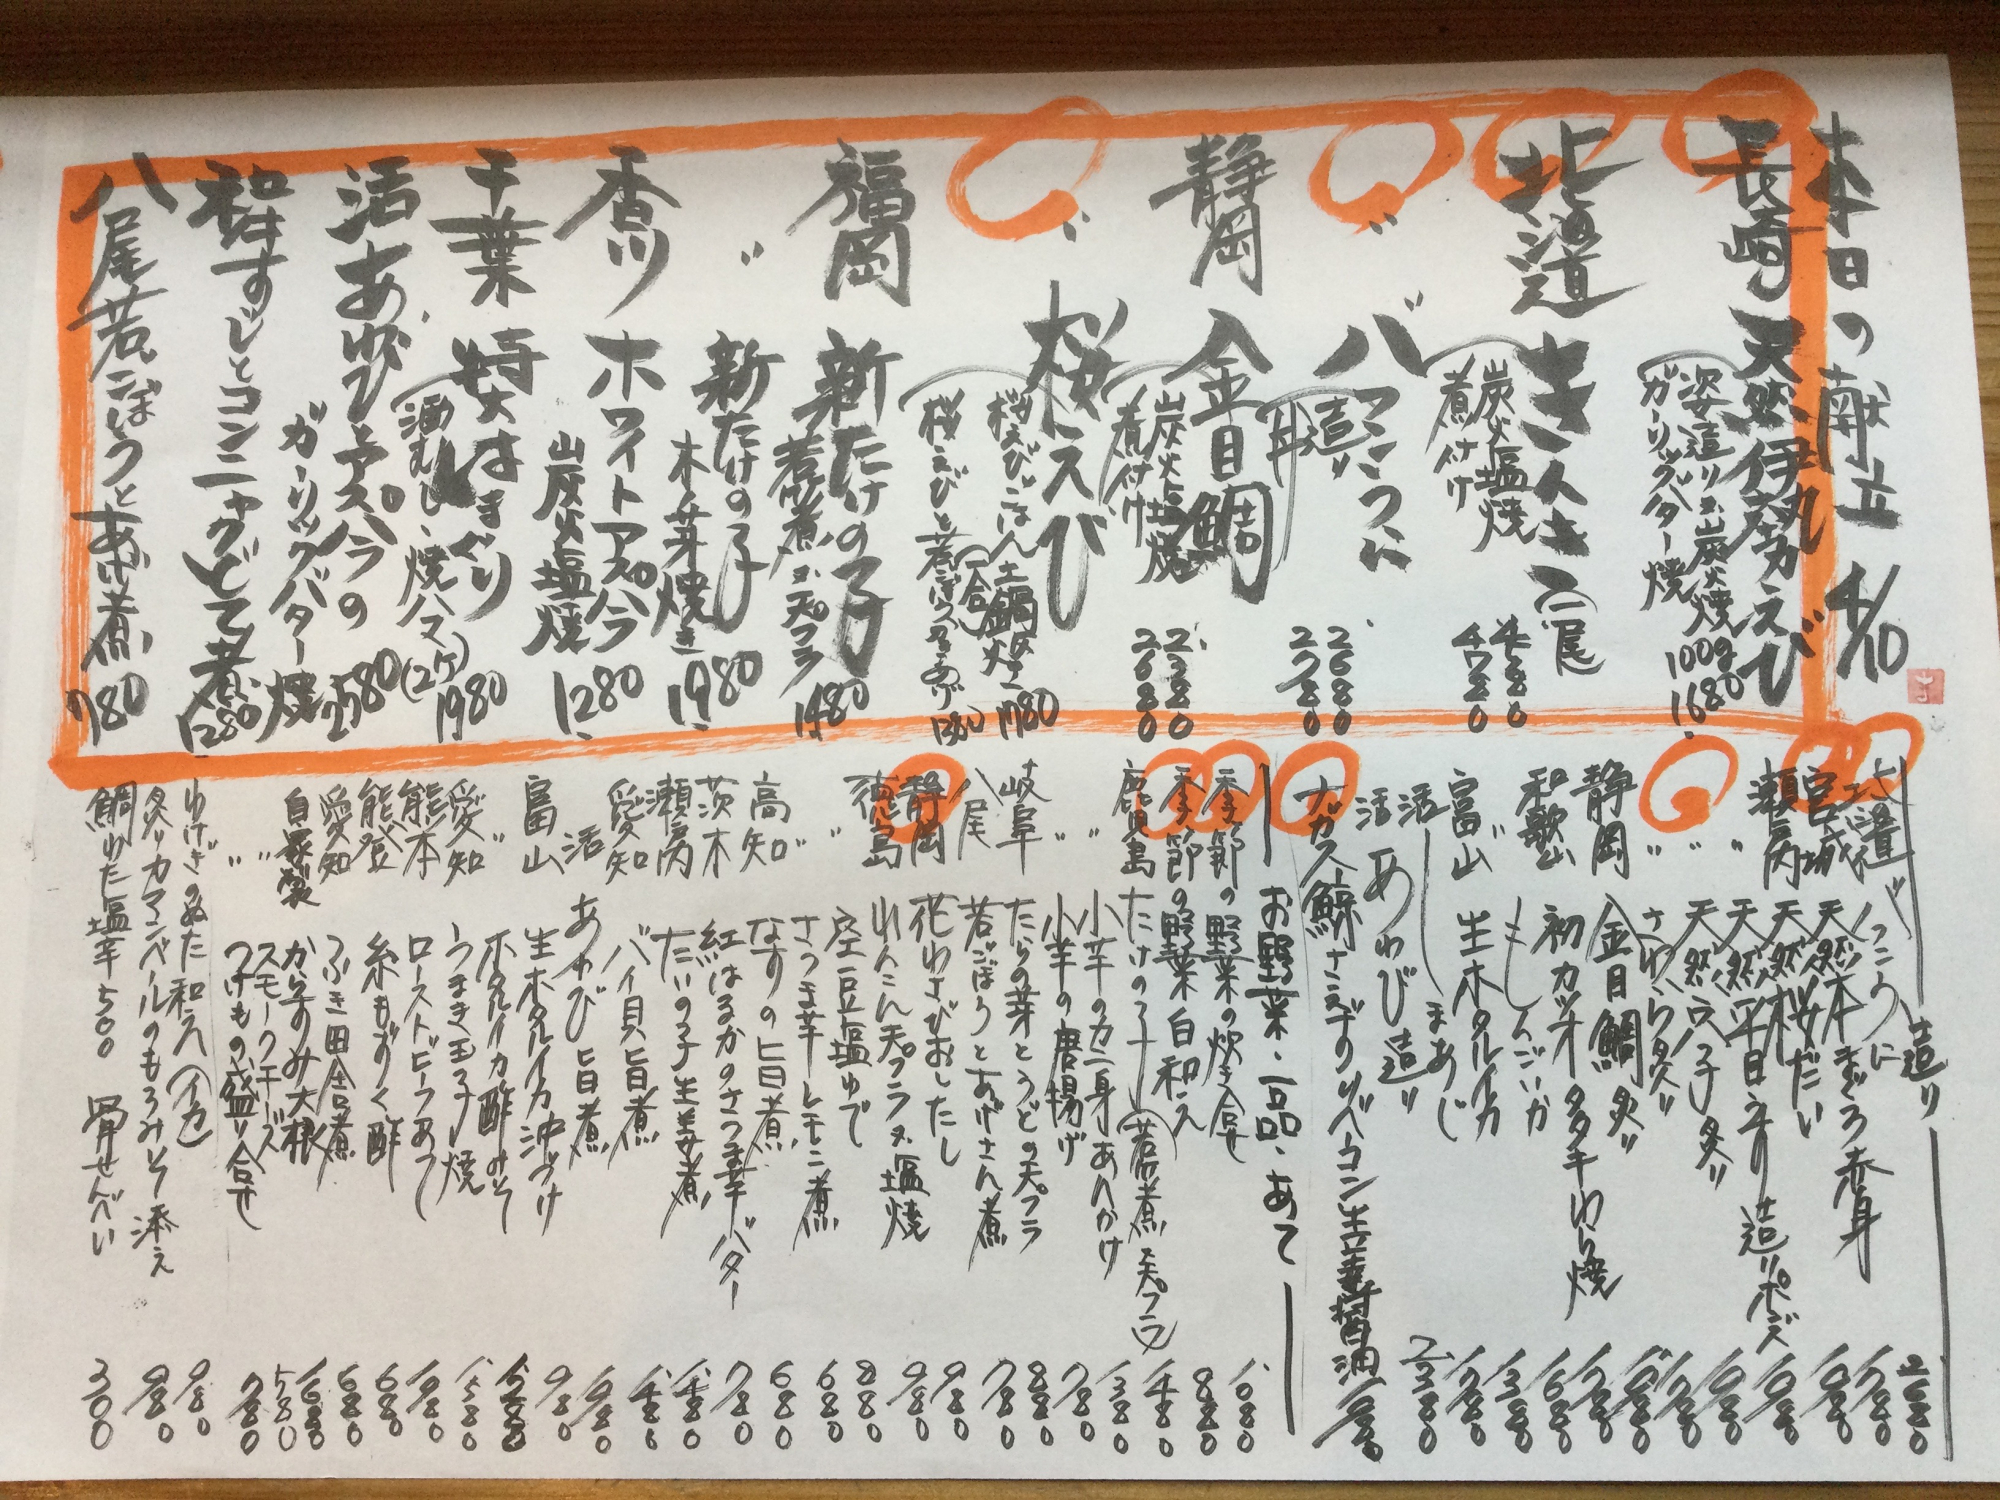 本日の献立 4/10
長崎 天然 伊勢えび
姿造り又炭火焼 100g
ガーリックバター焼 1680
北海道 きんき 一尾
炭火塩焼 4380
煮付け 4780
〃 バフンうに
造り 2680
丼 2780
静岡 金目鯛
炭火塩焼 2380
煮付け 2680
〃 桜えび
桜えびごはん土鍋炊き 1780
(一合)
桜えびと若ごぼうかきあげ 1380
福岡 新たけの子
若煮 又 天プラ 1480
〃 新たけの子
木の芽焼き 1980
香川 ホワイトアスパラ
炭火塩焼 1280
千葉 特大はまぐり
酒むし・焼ハマ(2ケ) 1980
活あわびとアスパラの
ガーリックバター焼 2580
和牛すじとコンニャクどて煮 1280
八尾若ごぼうとあげ煮 780
造り
北海道 バフンうに 2680
宮城 天然本まぐろ赤身 1780
瀬戸内 天然桜だい 1080
〃 天然平目 造りポンズ 1080
〃 天然 炙り 1080
〃 さわら タタキ 1280
静岡 金目鯛 炙り 1780
和歌山 初カツオ タタキ わら焼 1680
〃 もしろいか 1380
富山 生ホタルイカ 1280
活 しまあじ 1780
活 あわび 造り 2380
ナガス鯨 さえずりベーコン生姜醤油 1680
お野菜・一品・あて
季節の野菜の炊き合せ 1080
季節の野菜 白和え 880
鹿児島 たけの子(若煮・天プラ) 1480
〃 小芋のカニ身あんかけ 1380
〃 小芋の唐揚げ 780
岐阜 たらの芽とうどの天プラ 880
八尾 若ごぼうとあげさん煮 780
静岡 花わさびおしたし 980
徳島 れんこん天プラ又塩焼 980
〃 空豆塩ゆで 880
〃 さつま芋レモン煮 680
高知 なすの旨煮 680
茨木 紅はるかのさつま芋バター 780
瀬戸内 たいの子生姜煮 1480
愛知 バイ貝旨煮 1480
活 あわび 旨煮 1980
富山 生ホタルイカ沖づけ 980
〃 ホタルイカ酢みそ 1280
愛知 うまき玉子焼 1580
熊本 ローストビーフあて 1980
能登 糸もずく酢 680
愛知 ふき田舎煮 680
自家製 からすみ大根 1680
〃 スモークチーズ 580
〃 つけもの盛り合せ 780
わけぎのぬた和え(イカ) 980
炙りカマンベールのもろみそ添え 980
鯛わた塩辛 500 骨せんべい 300